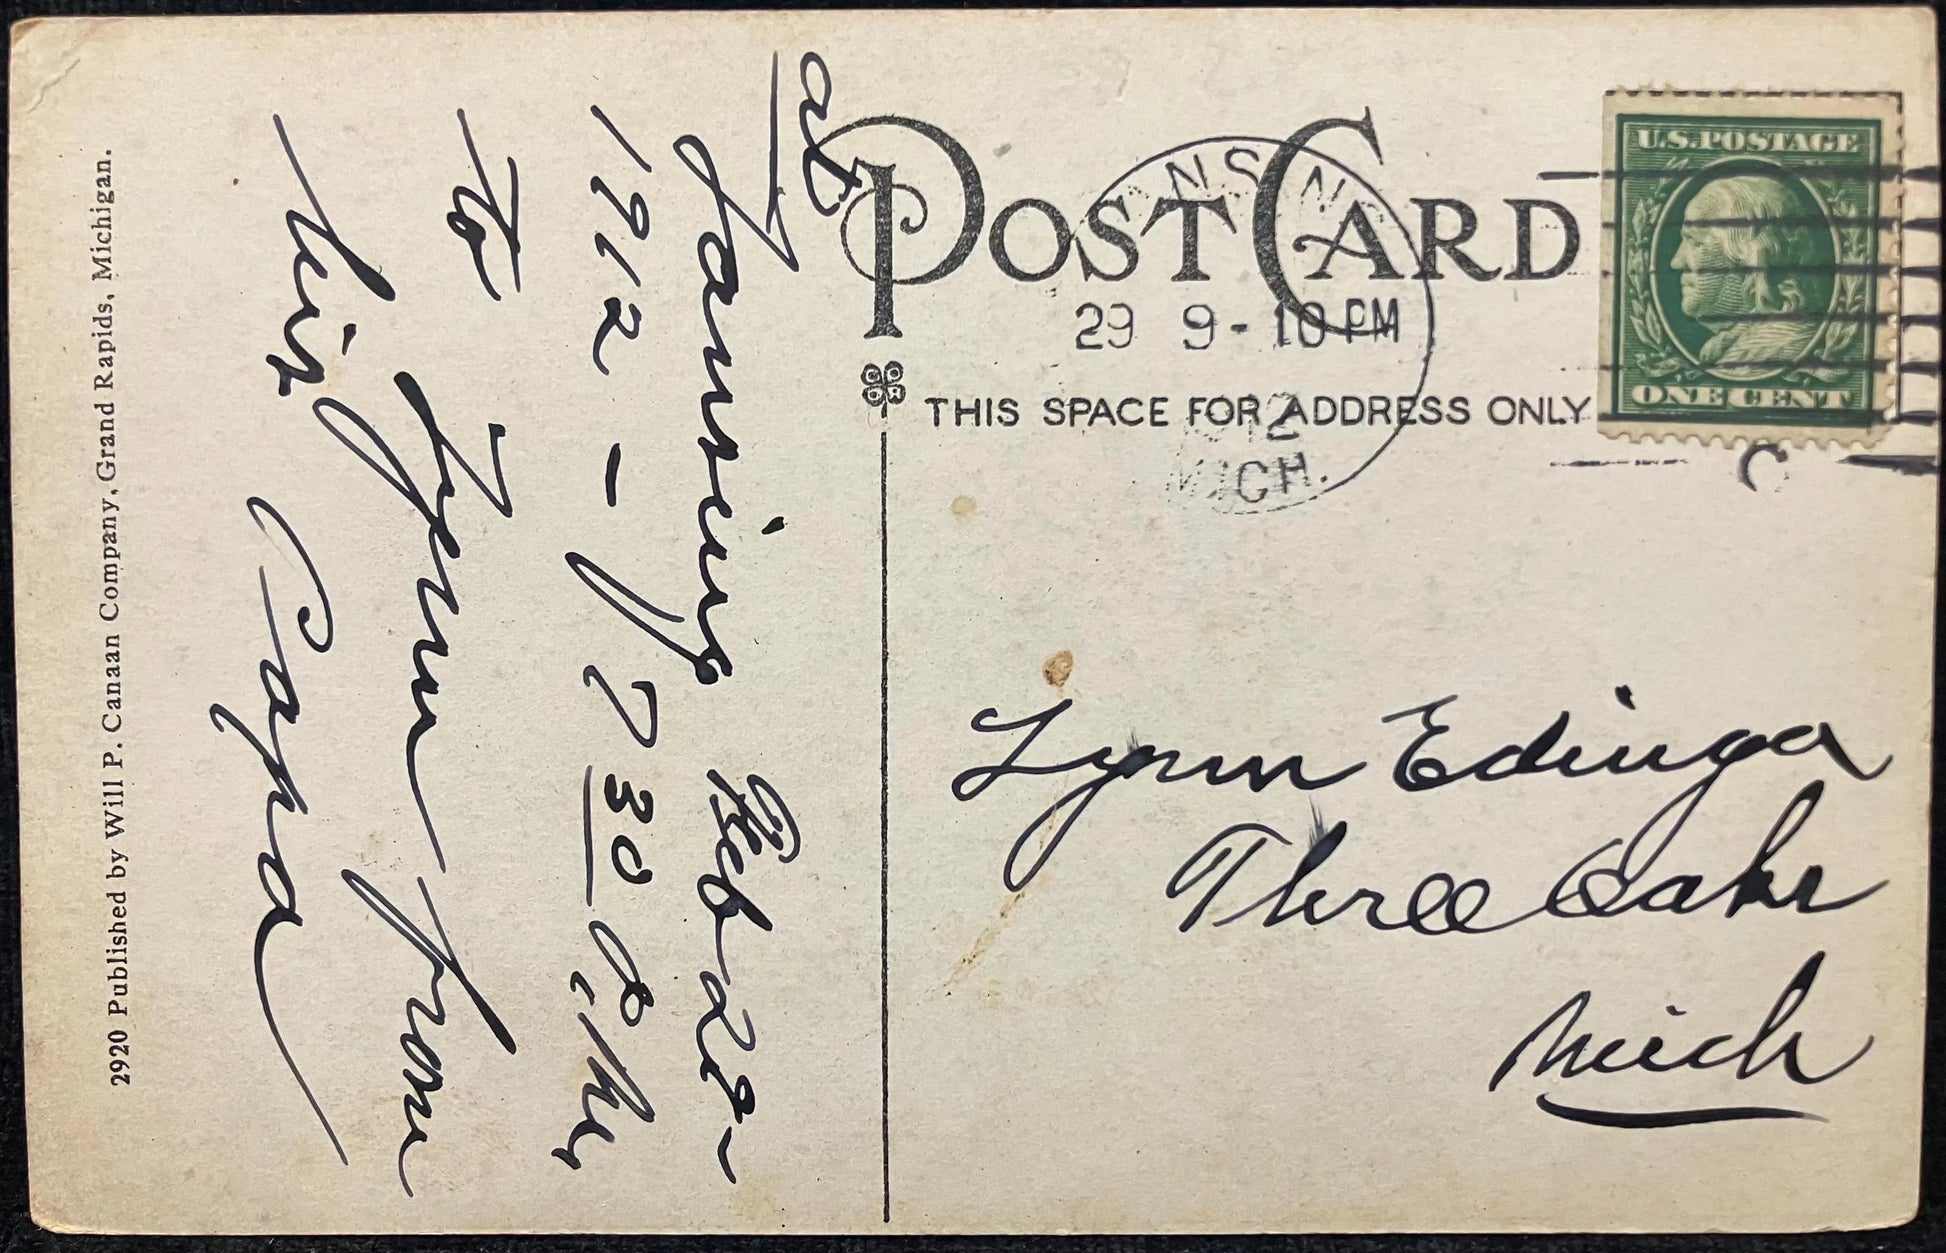 POST CARD
THIS SPACE FOR ADDRESS ONLY
LANSING
29 9-10 PM
1912
MICH.
U.S. POSTAGE
ONE CENT
Lynn Edinga
Three Oaks
Mich
at
Lansing Feb 29-
1912 - 7 30 P.M.
To Lynn from
his Papa
2920 Published by Will P. Canaan Company, Grand Rapids, Michigan.